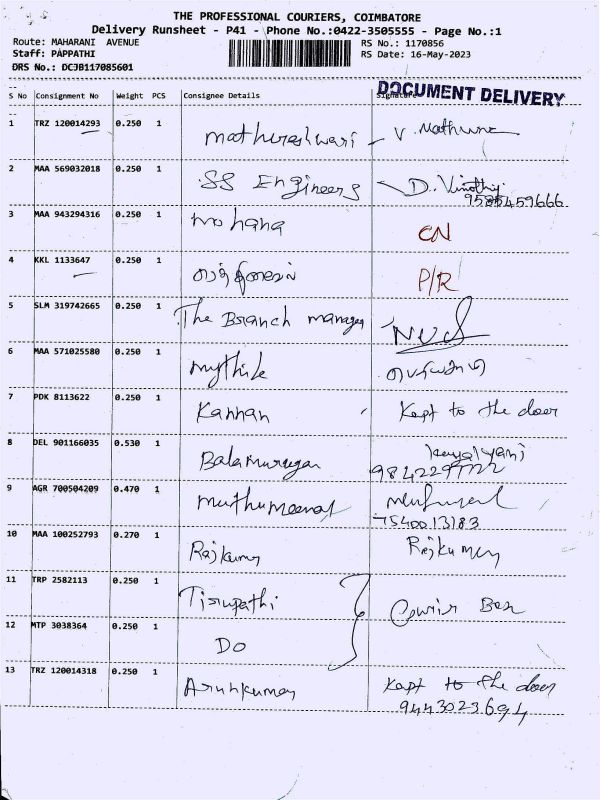 THE PROFESSIONAL COURIERS, COIMBATORE
Delivery Runsheet - P41 - Phone No.:0422-3505555 - Page No.:1
Route: MAHARANI AVENUE RS No.: 1170856
Staff: PAPPATHI RS Date: 16-May-2023
DRS No.: DCJB117085601
DOCUMENT DELIVERY
S No Consignment No Weight PCS Consignee Details Signature
1 TRZ 120014293 0.250 1 Mathureshwari V. Mathuna
2 MAA 569032018 0.250 1 SS Engineers D. Vinothy
9585459666
3 MAA 943294316 0.250 1 Mohana CN
4 KKL 1133647 0.250 1 P/R
5 SLM 319742665 0.250 1 The Branch manager
6 MAA 571025580 0.250 1 Mythile
7 PDK 8113622 0.250 1 Kannan Kept to the door
8 DEL 901166035 0.530 1 Balamurugan
9 AGR 700504209 0.470 1 Muthumeenal
7540013183
10 MAA 100252793 0.270 1 Rajkumar Rajkumar
11 TRP 2582113 0.250 1 Tirupathi Courier Box
12 MTP 3038364 0.250 1 DO
13 TRZ 120014318 0.250 1 Arunkumar Kept to the door
9443023694